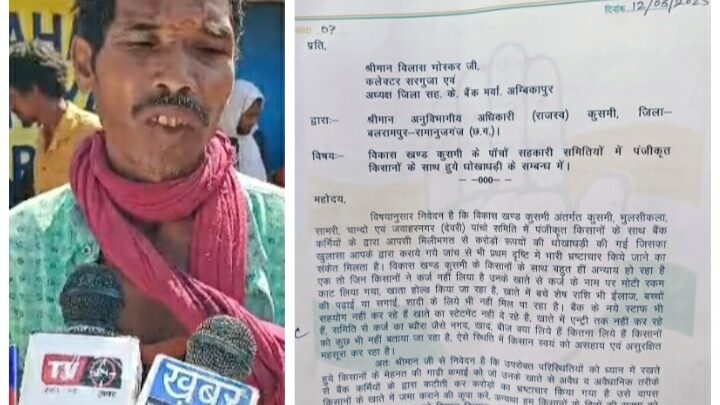 AHA
TV
खबर
क्रमांक 07
दिनांक 12/05/2025
प्रति,
श्रीमान विलास भोस्कर जी,
कलेक्टर सरगुजा एवं
अध्यक्ष जिला सह. के. बैंक मर्या. अम्बिकापुर
द्वाराः– श्रीमान अनुविभागीय अधिकारी (राजस्व) कुसमी, जिला–
बलरामपुर–रामानुजगंज (छ.ग.)।
विषयः– विकास खण्ड कुसमी के पाँचों सहकारी समितियों में पंजीकृत
किसानों के साथ हुये धोखाधड़ी के सम्बन्ध में।
–000–
महोदय,
विषयानुसार निवेदन है कि विकास खण्ड कुसमी अंतर्गत कुसमी, भुलसीकला,
सामरी, चान्दो एवं जवाहरनगर (देवरी) पांचो समिति में पंजीकृत किसानों के साथ बैंक
कर्मियों के द्वारा आपसी मिलीभगत से करोड़ों रूपयों की धोखाधड़ी की गई जिसका
खुलासा आपके द्वारा कराये गये जांच से भी प्रथम दृष्टि में भारी भ्रष्टाचार किये जाने का
संकेत मिलता है। विकास खण्ड कुसमी के किसानों के साथ बहुत ही अन्याय हो रहा है
एक तो जिन किसानों ने कर्ज नहीं लिया है उनके खाते से कर्ज के नाम पर मोटी रकम
काट लिया गया, खाता होल्ड किया जा रहा है, खाते में बचे शेष राशि भी ईलाज, बच्चों
की पढ़ाई या सगाई, शादी के लिये भी नहीं मिल पा रहा है। बैंक के नये स्टाफ भी
सहयोग नहीं कर रहे हैं खाता का स्टेटमेंट नहीं दे रहे है, खाते में एन्ट्री तक नहीं कर रहे
हैं, समिति से कर्ज का ब्यौरा जैसे नगद, खाद, बीज क्या लिये हैं कितना लिये हैं किसानों
को कुछ भी नहीं बताया जा रहा है, ऐसे स्थिति में किसान स्वयं को असहाय एवं असुरक्षित
महसूस कर रहा है।
अतः श्रीमान जी से निवेदन है कि उपरोक्त परिस्थितियों को ध्यान में रखते
हुये किसानों के मेहनत की गाढ़ी कमाई को जो उनके खाते से अवैध व अवैधानिक तरीके
से बैंक कर्मियों के द्वारा कटौती कर करोड़ों का भ्रष्टाचार किया गया है उसे वापस
किसानों के खाते में जमा कराने की कृपा करें, अन्यथा हम किसानों के